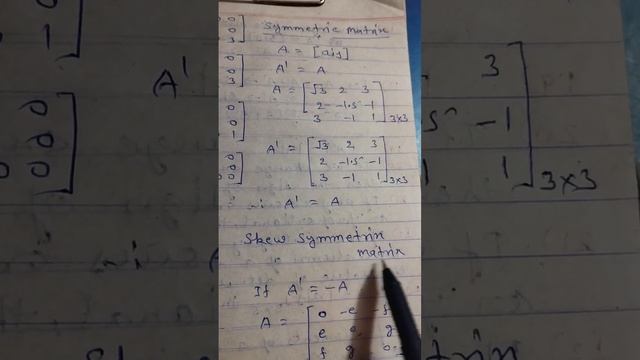 Symmetric matrix
A = [aij]
A' = A
A = [√3 2 3
2 -1.5 -1
3 -1 1]3x3
A' = [√3 2 3
2 -1.5 -1
3 -1 1]3x3
A' = A
Skew Symmetrix
matrix
If A' = -A
A = [0 -e -f